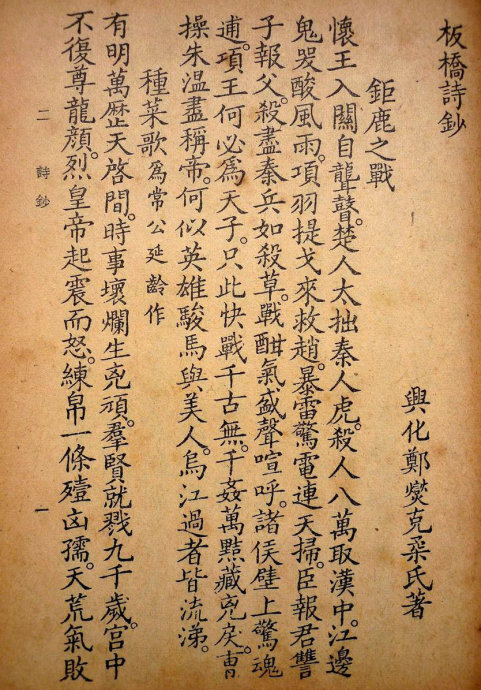 板橋詩鈔
興化鄭燮克柔氏著
鉅鹿之戰
懷王入關自聾瞽。楚人太拙秦人虎。殺人八萬取漢中。江邊
鬼哭酸風雨。項羽提戈來救趙。暴雷驚電連天掃。臣報君讐
子報父。殺盡秦兵如殺草。戰酣氣盛聲喧呼。諸侯壁上驚魂
逋。項王何必爲天子。只此快戰千古無。千姦萬黠藏兇戾。曹
操朱溫盡稱帝。何似英雄駿馬與美人。烏江過者皆流涕。
種菜歌爲常公延齡作
有明萬歷天啓間。時事壞爛生兇頑。羣賢就戮九千歲。宮中
不復尊龍顏。烈皇帝起震而怒。練帛一條殪凶孺。天荒氣敗
二
詩鈔
一